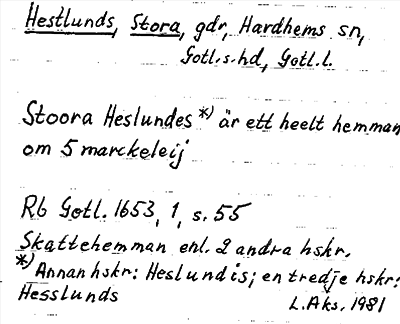 Hestlunds, Stora, gdr, Hardhems sn,
Gotl.s.hd, Gotl.l.
Stoora Heslundes *) är ett heelt hemman
om 5 marckeleij
Rb Gotl. 1653, 1, s. 55
Skattehemman enl. 2 andra hskr.
*) Annan hskr: Heslundis; en tredje hskr:
Hesslunds
L.Aks. 1981